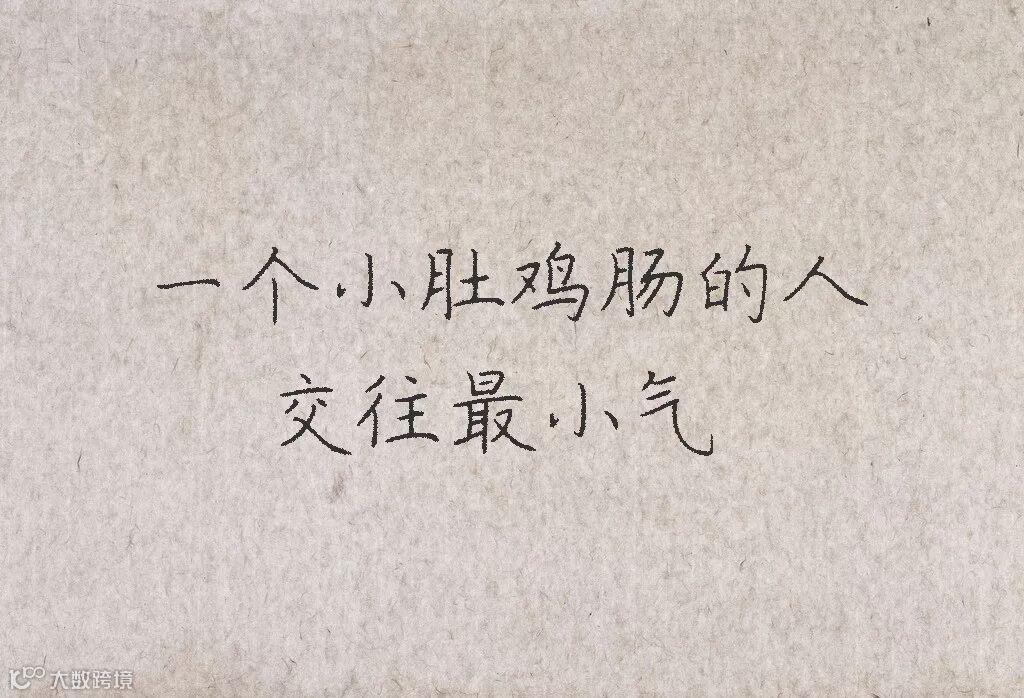 一个小肚鸡肠的人
交往最小气
大数跨境